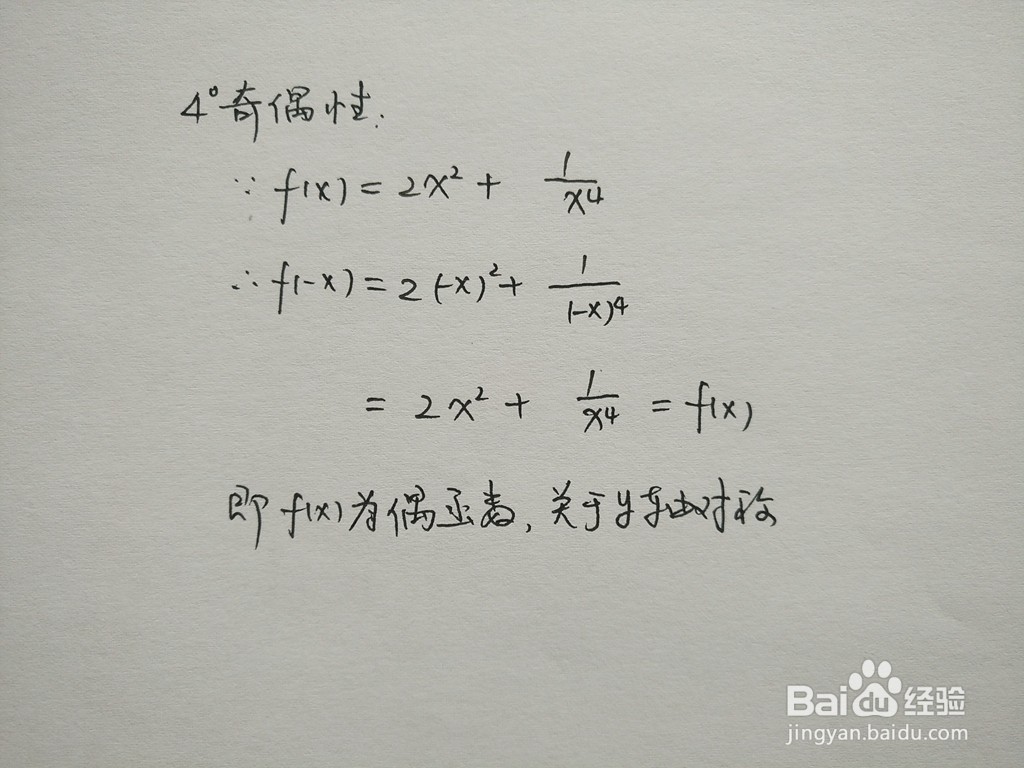 4°奇偶性:
∵ f(x) = 2x² + 1/x⁴
∴ f(-x) = 2(-x)² + 1/(-x)⁴
= 2x² + 1/x⁴ = f(x)
即 f(x) 为偶函数, 关于y轴对称
Baidu经验
jingyan.baidu.com